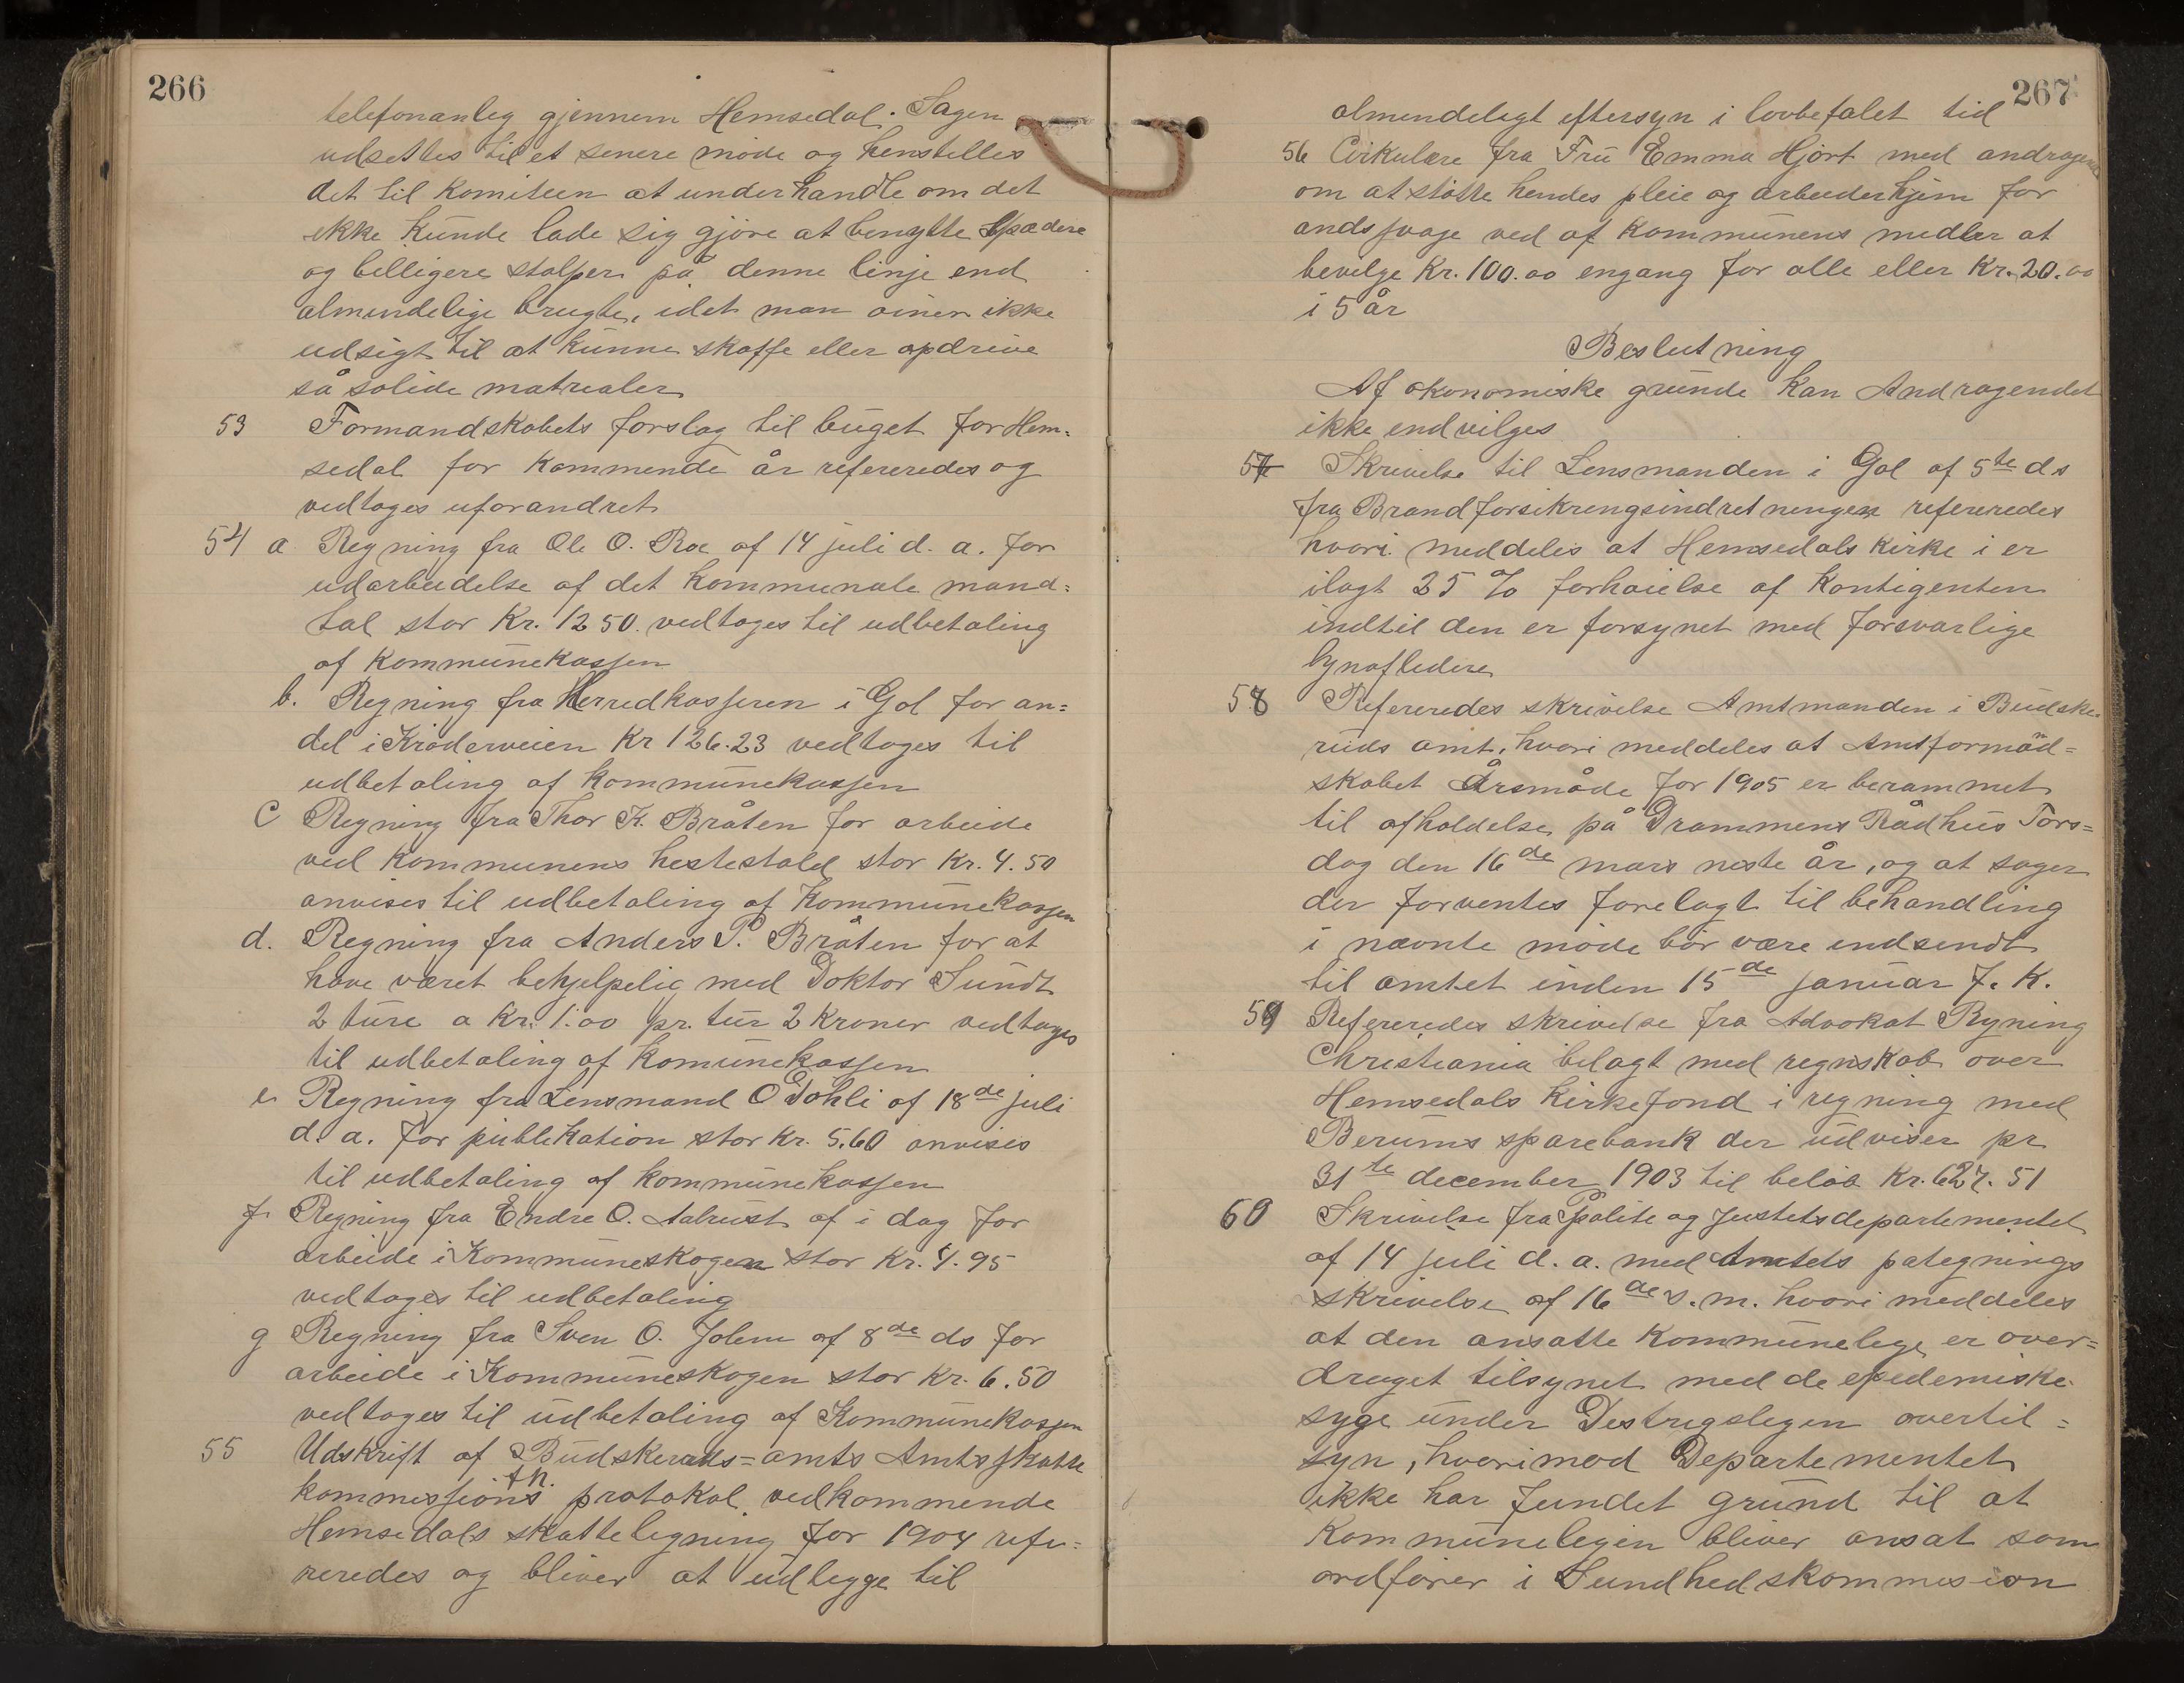 266
telefonanleg gjennem Hemsedal. Sagen
udsettes til et senere møde og henstilles
det til Komiteen at underhandle om det
ikke kunde lade sig gjøre at benytte spædere
og billigere stolper på denne linje end
almindelige brugte, idet man øiner ikke
udsigt til at kunne skaffe eller opdrive
så solide matrealer
53 Formandskabets forslag til buget for Hem=
sedal for kommende år refereredes og
vedtoges uforandret
54 a Regning fra Ole O. Roe af 14 juli d. a. for
udarbeidelse af det kommunale mand=
tal stor Kr. 12 50. vedtoges til udbetaling
af Kommunekassen
b. Regning fra Herredkasseren i Gol for an=
del i Krøderveien Kr 126.23 vedtoges til
udbetaling af kommunekassen
c Regning fra Thor K. Bråten for arbeide
ved kommunens hestestald stor Kr. 4.50
anvises til udbetaling af Kommunekassen
d. Regning fra Anders P. Bråten for at
have været behjelpelig med Doktor Sundt
2 ture a Kr. 1.00 pr. tur 2 Kroner vedtoges
til udbetaling af Komunekassen
e Regning fra Lensmand O Døhli af 18de juli
d. a. for publikation stor Kr. 5.60 anvises
til udbetaling af kommunekassen
f. Regning fra Endre O. Aalrust af i dag for
arbeide i Kommuneskogen stor Kr. 4.95
vedtoges til udbetaling
g Regning fra Sven O. Jolem af 8de ds for
arbeide i Kommuneskogen stor Kr. 6.50
vedtoges til udbetaling af Kommunekassen
55 Udskrift af Buskeruds=amts Amtsskatte
kommissions protokol vedkommende
Hemsedals skatteligning for 1904 refe=
reredes og bliver at udlegge til
267
almindeligt eftersyn i lovbefalet tid
56 Cirkulære fra Fru Emma Hjort med andragende
om at støtte hendes pleie og arbeiderhjem for
andssvage ved af kommunens midler at
bevilge Kr. 100.00 engang for alle eller Kr. 20.00
i 5 år
Beslutning
Af økonomiske grunde kan Andragendet
ikke endvilges
57 Skrivelse til Lensmanden i Gol af 5te ds
fra Brandforsikrengsindretningen refereredes
hvori meddeles at Hemsedals kirke i er
ilagt 25 % forhøielse af Kontigenten
indtil den er forsynet med forsvarlige
lynafledere
58 Refereredes skrivelse Amtmanden i Budske=
ruds amt, hvori meddeles at Amtformand=
skabet Årsmøde for 1905 er berammet
til afholdelse på Drammens Rådhus Tors=
dag den 16de mars neste år, og at sager
der forventes forelagt til behandling
i nævnte møde bør være indsendt
til amtet inden 15de januar f. K.
59 Refereredes skrivelse fra Advokat Ryning
Christiania bilagt med regnskab over
Hemsedals Kirkefond i regning med
Berums sparebank der udviser pr
31te december 1903 til beløb Kr. 627. 51
60 Skrivelse fra Politi og Justetsdepartementet
af 14 juli d. a. med Amtets pategnings
skrivelse af 16de s. m. hvori meddeles
at den ansatte Kommunelege er over=
draget tilsynet med de epedemiske
syge under Destrigslegen overtil=
syn, hvorimod Departementet
ikke har fundet grund til at
Kommunelegen bliver ansat som
ordfører i Sundhedskommision